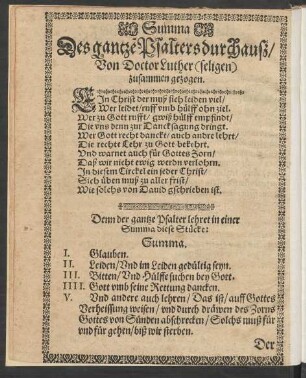 Summa
Des gantzē Psalters durchauß/
Von Doctor Luther (seligen)
zusammen gezogen.
EIn Christ der muß sich leiden viel/
Wer leidet/ruff vmb hülff ohn ziel.
Wer zu Gott rufft/ gwiß hülff empfindt/
Die vns denn zur Dancksagung dringt.
Wer Gott recht danckt/ auch andre lehrt/
Die rechte Lehr zu Gott bekehrt.
Vnd warnet auch für Gottes Zorn/
Daß wir nicht ewig werdn verlohrn.
In diesem Circkel ein jeder Christ/
Sich üben muß zu aller frist/
Wie solchs von Dauid geschrieben ist.
Denn der gantze Psalter lehret in einer
Summa diese Stücke:
Summa.
I. Glauben.
II. Leiden/ Vnd im Leiden gedültig seyn.
III. Bitten/ Vnd Hülffe suchen bey Gott.
IIII. Gott vmb seine Rettung dancken.
V. Vnd andere auch lehren/ Das ist/ auff Gottes
Verheissung weisen/ vnd durch dräwen des Zorns
Gottes von Sünden abschrecken/ Solchs muß für
vnd für gehen/ biß wir sterben.
Der